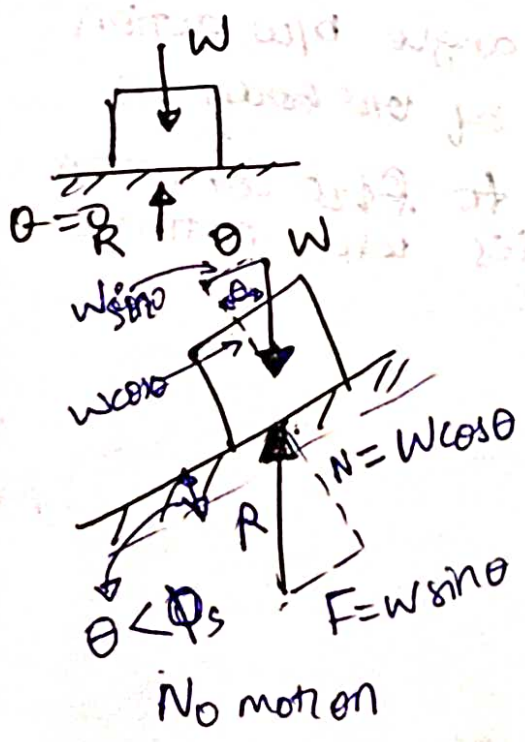 W
θ = 0
R
θ W
Wsinθ
θ
Wcosθ
N = Wcosθ
R
F = Wsinθ
θ < Φs
No motion